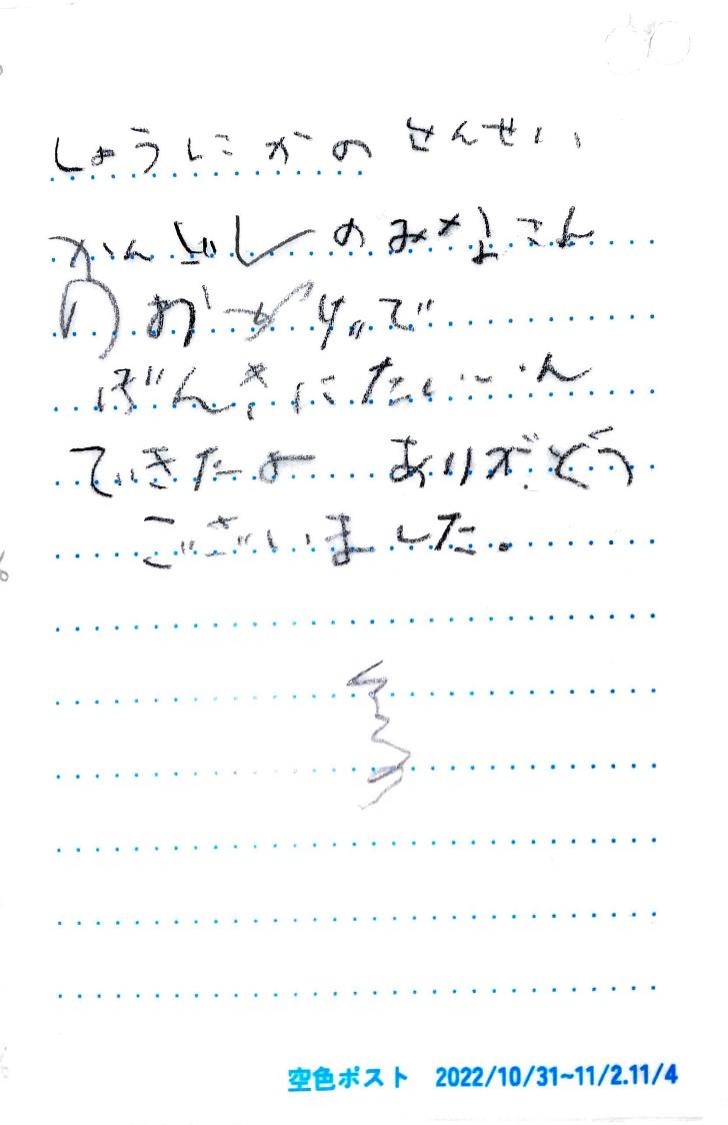 しょうにかの せんせい
かんごしのみなさん
のおかげで
げんきにたいいん
できたよ ありがとう
ございました。
空色ポスト 2022/10/31~11/2.11/4